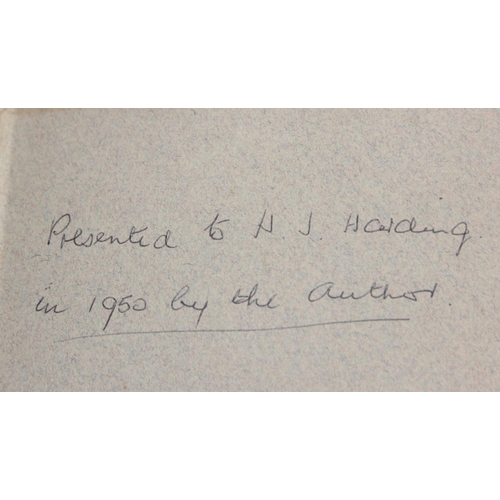 Presented to H. J. Harding.
in 1950 by the Author.